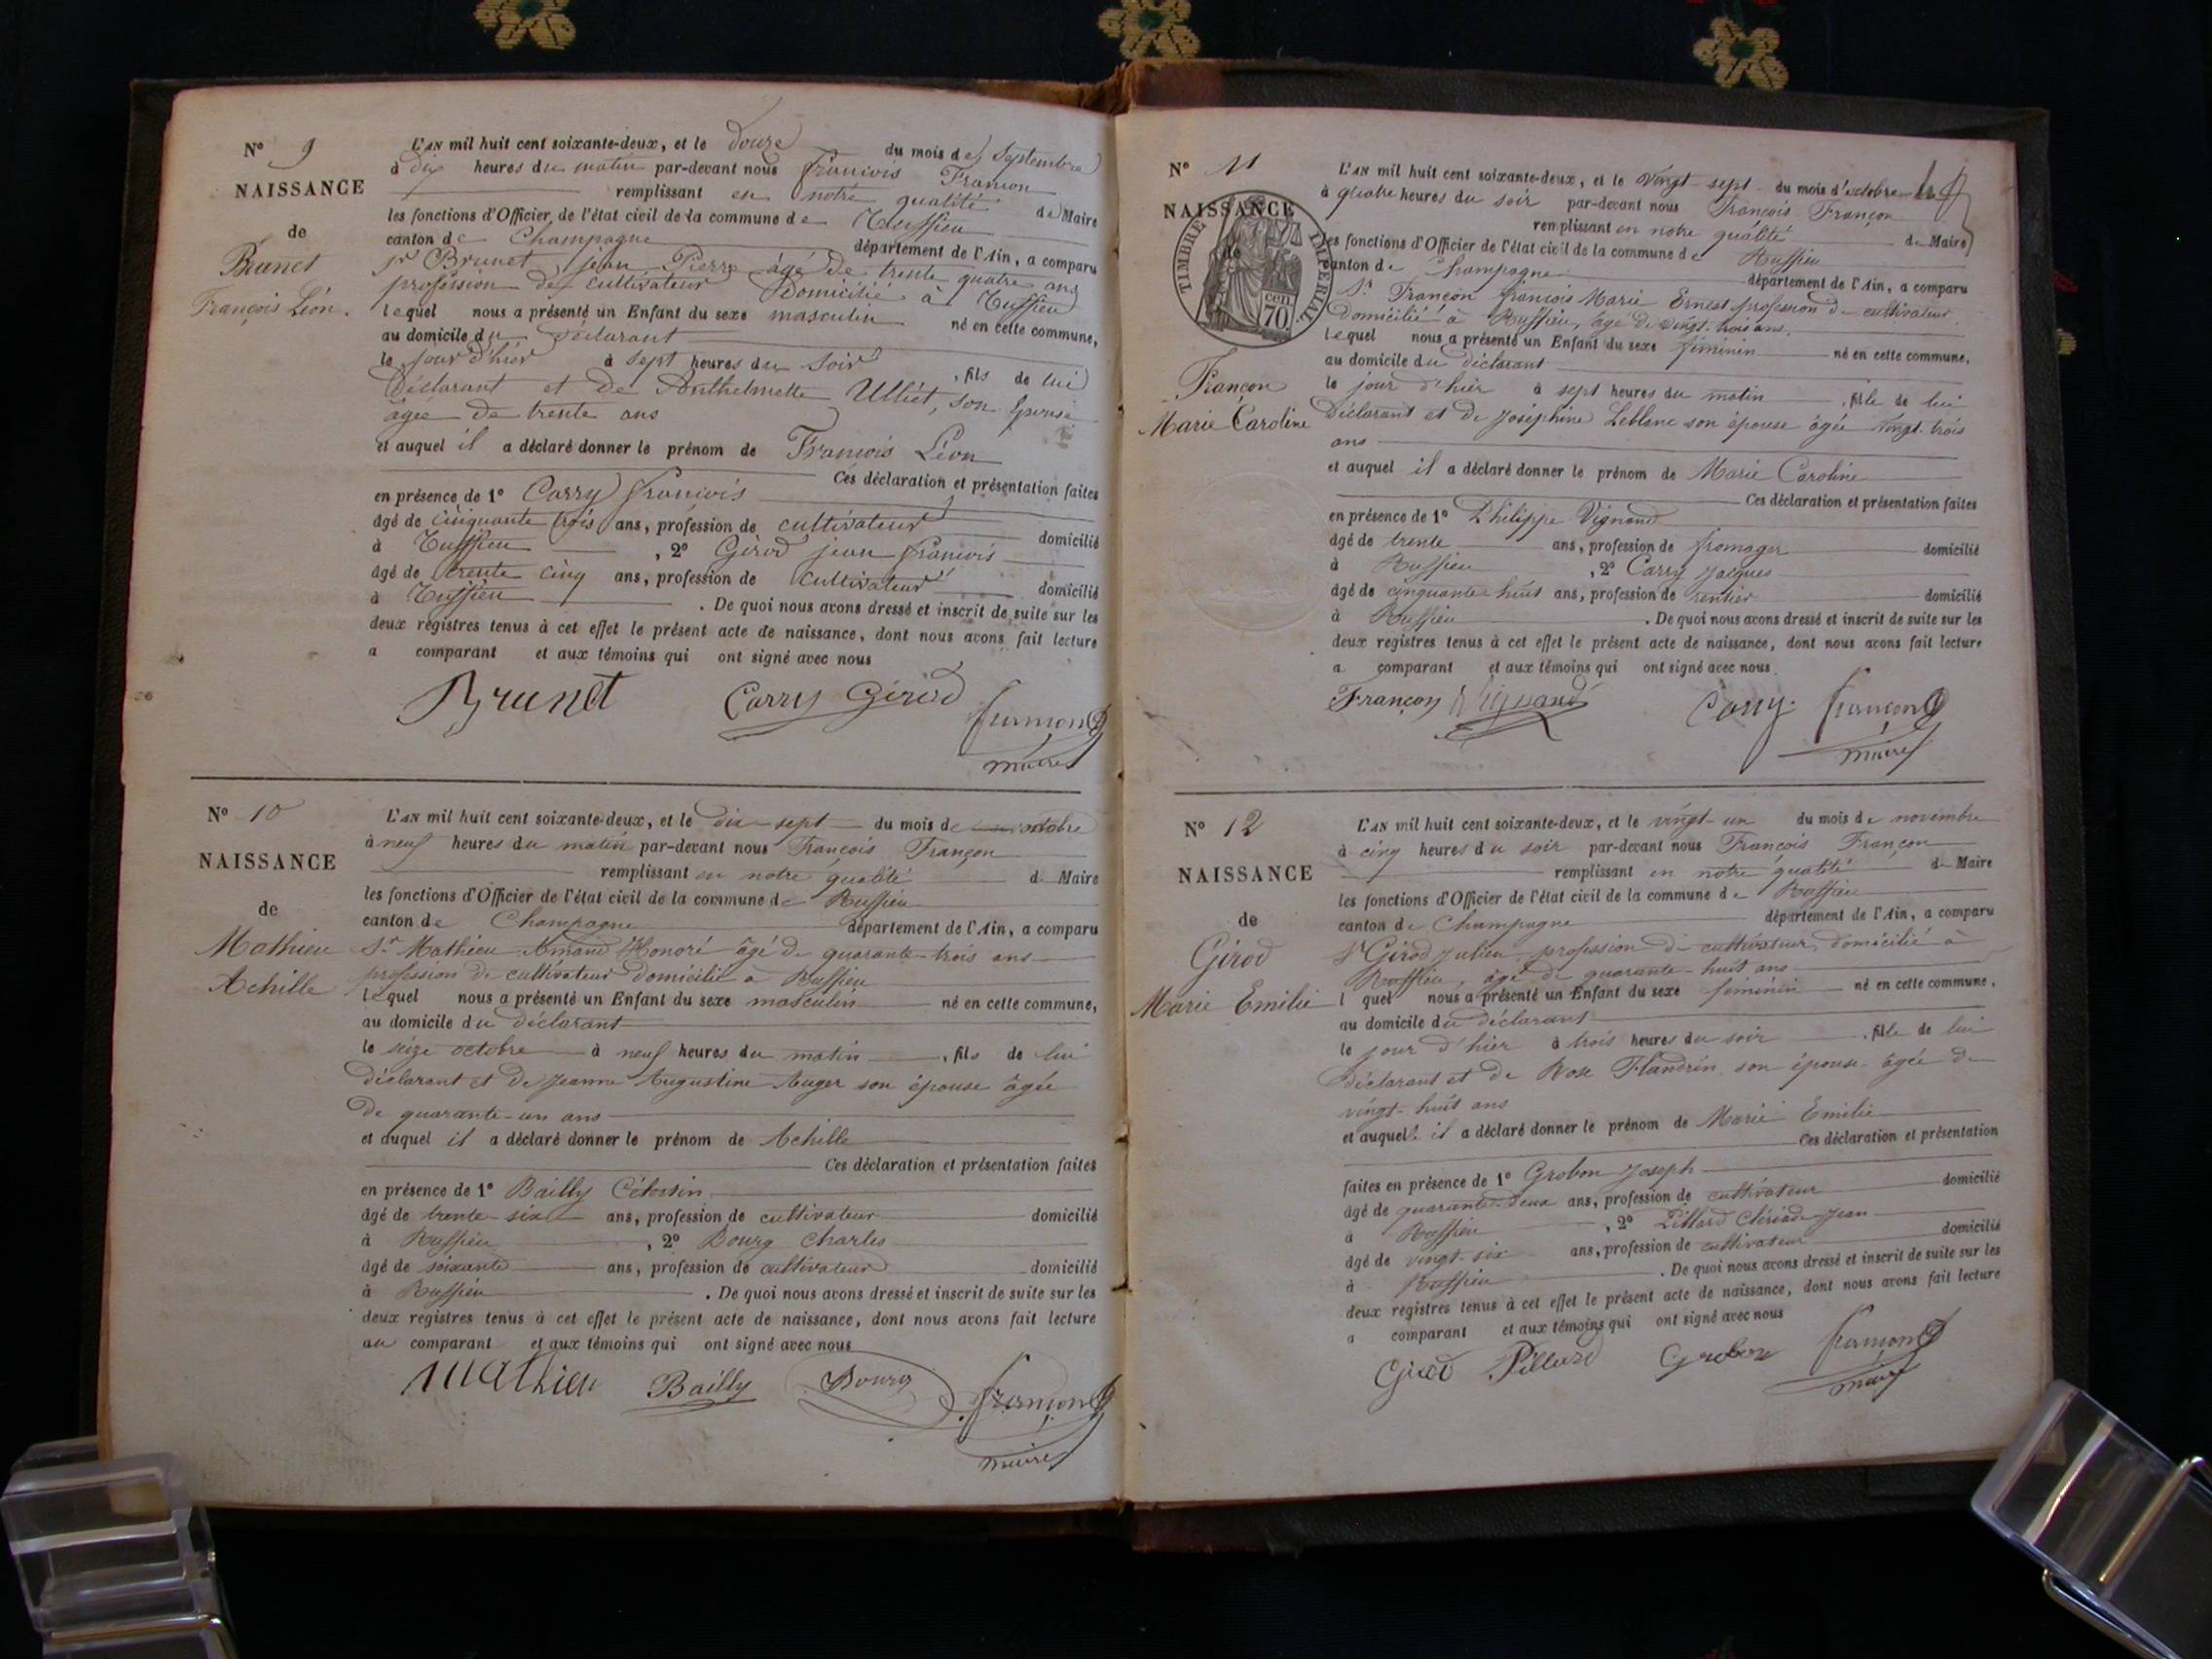 N° 9
NAISSANCE
de
Brunet
François Léon.
L'AN mil huit cent soixante-deux, et le douze du mois de septembre
à dix heures du matin par-devant nous François Françon
remplissant en notre qualité de Maire
les fonctions d'Officier de l'état civil de la commune de Ruffieu
canton de Champagne département de l'Ain, a comparu
Sr Brunet jean Pierre âgé de trente quatre ans
profession de cultivateur Domicilié à Ruffieu
lequel nous a présenté un Enfant du sexe masculin né en cette commune,
au domicile du déclarant
le jour d'hier à sept heures du soir, fils de lui
Déclarant et de Anthelmette Ulliet, son épouse
âgée de trente ans
et auquel il a déclaré donner le prénom de François Léon
Ces déclaration et présentation faites
en présence de 1° Carry françois
âgé de cinquante trois ans, profession de cultivateur domicilié
à Ruffieu, 2° Girod jean françois
âgé de trente cinq ans, profession de cultivateur domicilié
à Ruffieu. De quoi nous avons dressé et inscrit de suite sur les
deux registres tenus à cet effet le présent acte de naissance, dont nous avons fait lecture
a comparant et aux témoins qui ont signé avec nous
Brunet Carry Girod françon
maire
N° 10
NAISSANCE
de
Mathieu
Achille
L'AN mil huit cent soixante-deux, et le dix-sept du mois de octobre
à neuf heures du matin par-devant nous François Françon
remplissant en notre qualité de Maire
les fonctions d'Officier de l'état civil de la commune de Ruffieu
canton de Champagne département de l'Ain, a comparu
Sr Mathieu Amand Honoré âgé de quarante-trois ans
profession de cultivateur domicilié à Ruffieu
lequel nous a présenté un Enfant du sexe masculin né en cette commune,
au domicile du déclarant
le seize octobre à neuf heures du matin, fils de lui
déclarant et de Jeanne Augustine Auger son épouse âgée
de quarante-un ans
et auquel il a déclaré donner le prénom de Achille
Ces déclaration et présentation faites
en présence de 1° Bailly Célestin
âgé de trente-six ans, profession de cultivateur domicilié
à Ruffieu, 2° Bourg Charles
âgé de soixante ans, profession de cultivateur domicilié
à Ruffieu. De quoi nous avons dressé et inscrit de suite sur les
deux registres tenus à cet effet le présent acte de naissance, dont nous avons fait lecture
au comparant et aux témoins qui ont signé avec nous
Mathieu Bailly Bourg françon
maire
N° 11
NAISSANCE
de
TIMBRE IMPERIAL
70 cen.
Françon
Marie Caroline
L'AN mil huit cent soixante-deux, et le vingt-sept du mois d'octobre
à quatre heures du soir par-devant nous François Françon
remplissant en notre qualité de Maire
les fonctions d'Officier de l'état civil de la commune de Ruffieu
canton de Champagne département de l'Ain, a comparu
Sr Françon françois Marie Ernest profession de cultivateur
domicilié à Ruffieu, âgé de vingt-trois ans.
lequel nous a présenté un Enfant du sexe féminin né en cette commune,
au domicile du déclarant
le jour d'hier à sept heures du matin, fille de lui
Déclarant et de Joséphine Leblanc son épouse âgée vingt-trois
ans
et auquel il a déclaré donner le prénom de Marie Caroline
Ces déclaration et présentation faites
en présence de 1° Philippe Vignand
âgé de trente ans, profession de fromager domicilié
à Ruffieu, 2° Carry Jacques
âgé de cinquante-huit ans, profession de rentier domicilié
à Ruffieu. De quoi nous avons dressé et inscrit de suite sur les
deux registres tenus à cet effet le présent acte de naissance, dont nous avons fait lecture
a comparant et aux témoins qui ont signé avec nous
Françon Vignand Carry françon
maire
N° 12
NAISSANCE
de
Girod
Marie Emilie
L'AN mil huit cent soixante-deux, et le vingt-un du mois de novembre
à cinq heures du soir par-devant nous François Françon
remplissant en notre qualité de Maire
les fonctions d'Officier de l'état civil de la commune de Ruffieu
canton de Champagne département de l'Ain, a comparu
Sr Girod Julien profession de cultivateur, domicilié à
Ruffieu, âgé de quarante-huit ans
l quel nous a présenté un Enfant du sexe féminin né en cette commune,
au domicile du déclarant
le jour d'hier à trois heures du soir, fille de lui
Déclarant et de Rose Flandrin son épouse âgée de
vingt-huit ans
et auquelle il a déclaré donner le prénom de Marie Emilie
Ces déclaration et présentation
faites en présence de 1° Grobon Joseph
âgé de quarante-deux ans, profession de cultivateur domicilié
à Ruffieu, 2° Pillard Jean
âgé de vingt-six ans, profession de cultivateur domicilié
à Ruffieu. De quoi nous avons dressé et inscrit de suite sur les
deux registres tenus à cet effet le présent acte de naissance, dont nous avons fait lecture
a comparant et aux témoins qui ont signé avec nous
Girod Pillard Grobon françon
maire